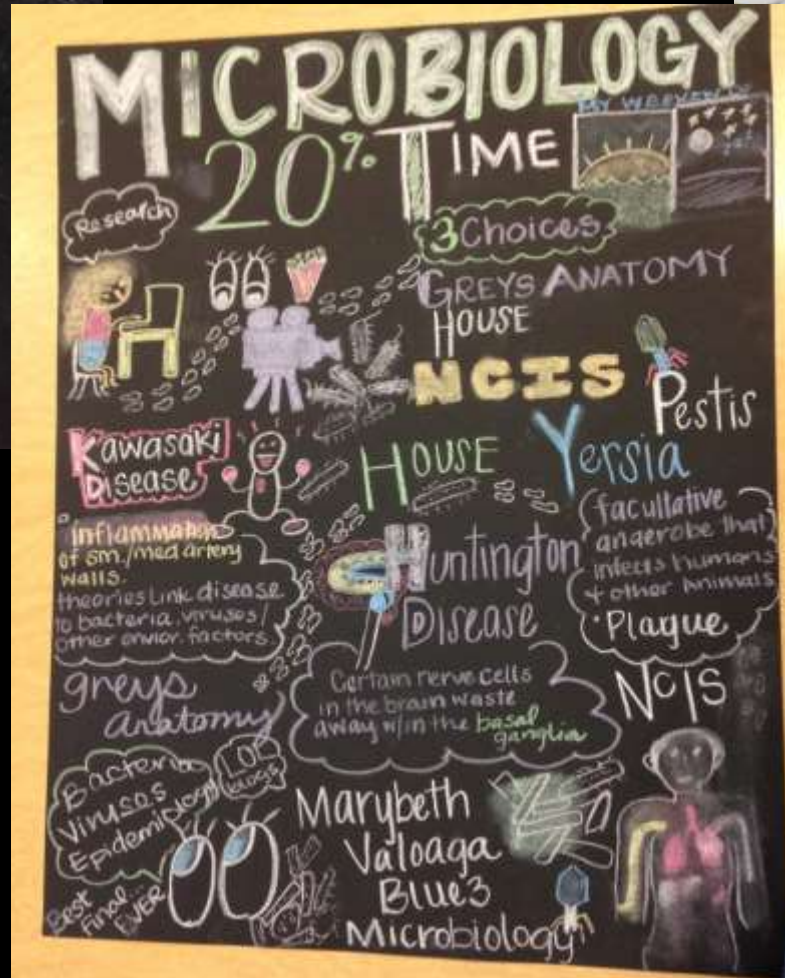 MICROBIOLOGY
20% TIME
MY WEEKEND
Research
3 Choices
GREYS ANATOMY
HOUSE
NCIS
Pestis
Yersia
Kawasaki
Disease
HOUSE
inflammation
of sm./med artery
walls.
theories link disease
to bacteria, viruses/
other envior. factors
Huntington
Disease
facultative
anaerobe that
infects humans
+ other animals
• Plague
greys
anatomy
Certain nerve cells
in the brain waste
away w/in the basal
ganglia
NCIS
Bacteria
Viruses
Epidemiology
blogs
Best
Final...
EVER
Marybeth
Valoaga
Blue3
Microbiology